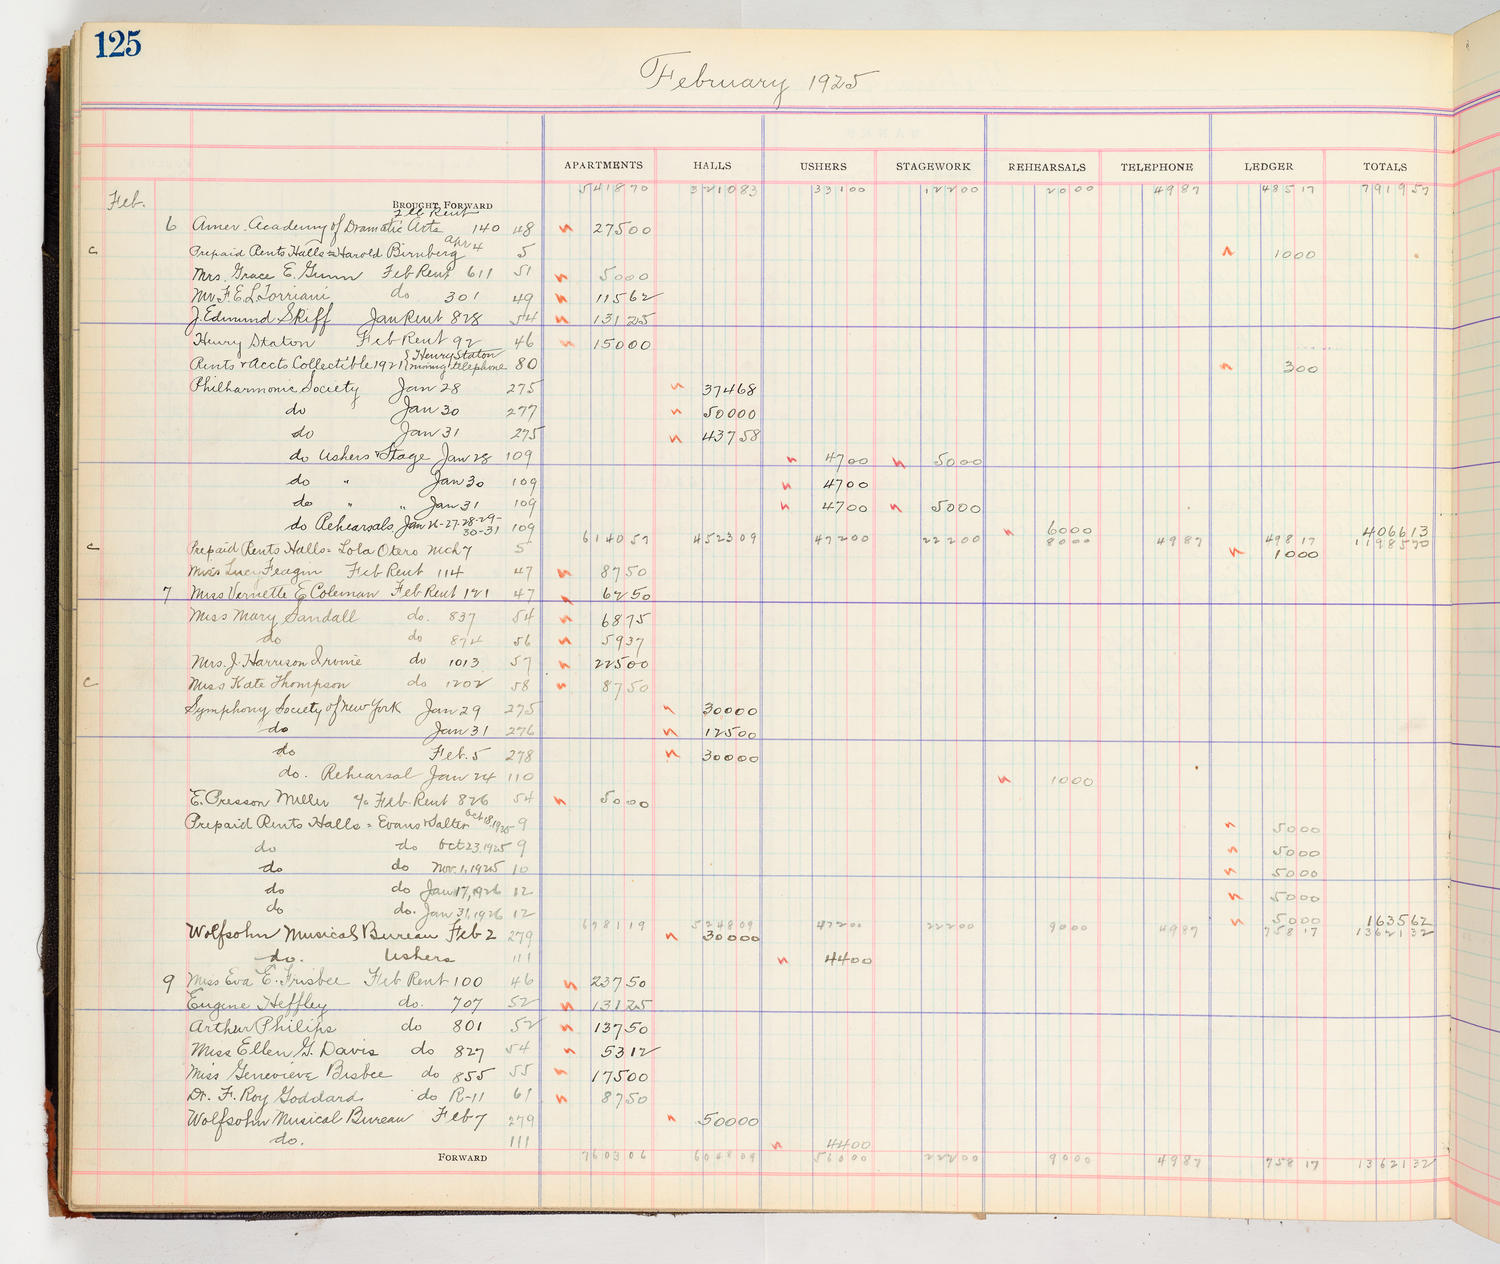 125
February 1925
APARTMENTS HALLS USHERS STAGEWORK REHEARSALS TELEPHONE LEDGER TOTALS
541870 321083 33100 12200 2000 4987 48517 791957
Feb. BROUGHT FORWARD
Feb Rent
6 Amer. Academy of Dramatic Arts 140 48 27500
c Prepaid Rents Halls = Harold Birnberg Apr 4 5 1000
Mrs. Grace E. Gunn Feb Rent 611 51 5000
Mr F. E. L. Torriani do 301 49 11562
J. Edmund Skiff Jan Rent 828 54 13125
Henry Staton Feb Rent 92 46 15000
Rents & Accts Collectible 1921 { Henry Staton moving telephone 80 300
Philharmonic Society Jan 28 275 37468
do Jan 30 277 50000
do Jan 31 275 43758
do Ushers & Stage Jan 28 109 4700 5000
do " Jan 30 109 4700
do " " Jan 31 109 4700 5000
do Rehearsals Jan 26-27-28-29-30-31 109 6000 406613
614057 452309 47200 22200 8000 4987 49817 1198570
c Prepaid Rents Halls = Lola Otero Mch 7 5 1000
Miss Lucy Feagin Feb Rent 114 47 8750
7 Miss Vernette E Coleman Feb Rent 121 47 6250
Miss Mary Sandall do. 837 54 6875
do do 874 56 5937
Mrs. J. Harrison Irvine do 1013 57 22500
c Miss Kate Thompson do 1202 58 8750
Symphony Society of New York Jan 29 275 30000
do Jan 31 276 12500
do Feb. 5 278 30000
do. Rehearsal Jan 24 110 1000
E. Presson Miller % Feb. Rent 826 54 5000
Prepaid Rents Halls = Evans & Salter Oct 18, 1925 9 5000
do do Oct 23, 1925 9 5000
do do Nov. 1, 1925 10 5000
do do Jan 17, 1926 12 5000
do do. Jan 31, 1926 12 5000 163562
678119 524809 47200 22200 9000 4987 75817 1362132
Wolfsohn Musical Bureau Feb 2 279 30000
do. Ushers 111 4400
9 Miss Eva E. Frisbee Feb Rent 100 46 23750
Eugene Heffley do. 707 52 13125
Arthur Philips do 801 52 13750
Miss Ellen G. Davis do 827 54 5312
Miss Genevieve Bisbee do 855 55 17500
Dr. F. Roy Goddard do R-11 61 8750
Wolfsohn Musical Bureau Feb 7 279 50000
do. 111 4400
FORWARD 760306 604809 56000 22200 9000 4987 75817 1362132